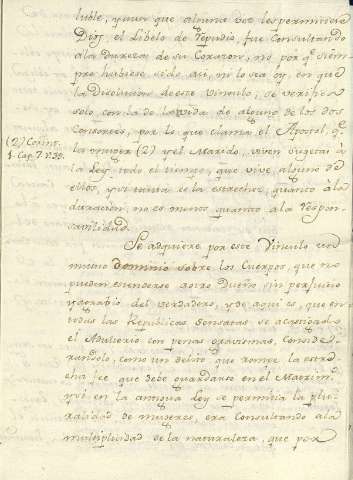 luble, y aun que alguna vez les permitiera
Dios el Libelo de repudio, fue Consultando
a la dureza de su Corazon; no por q.e siem-
pre hubiese sido asi, ni lo sea oy, en que
la disolucion de este Vinculo, se verifica
solo con la de la vida de alguno de los dos
Consortes, por lo que clama el Apostol, q.e
(2) Corint.
1. Cap. 7. v. 39.
la muger (2) y el Marido, viven sugetas á
la Ley todo el tiempo, que vive, alguno de
ellos, y si tanta es la estrechez, quanto á la
duracion, no es menos quanto á la respon-
savilidad.
Se adquiere por este Vinculo un
mutuo Dominio sobre los Cuerpos, que no
pueden estenderse á otro Dueño sin perjuicio
y agravio del verdadero, y de aqui es, que en
todas las Republicas sensatas se à castigado
el Adulterio con penas gravisimas, Conside-
randolo, como un delito que rompe la estre-
cha fee que debe guardarse en el Matrim.o
y si en la antigua Ley se permitia la plu-
ralidad de mugeres, era Consultando á la
multiplicidad de la naturaleza, que por